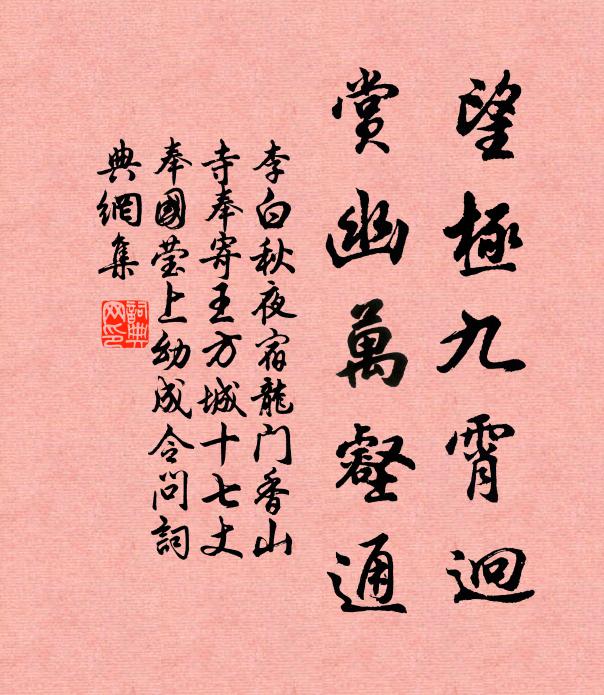 望極九霄迥
賞幽萬壑通
李白秋夜宿龍门香山
寺奉寄王方城十七丈
奉國莹上幼成令问詞
典網集
詞典
网印